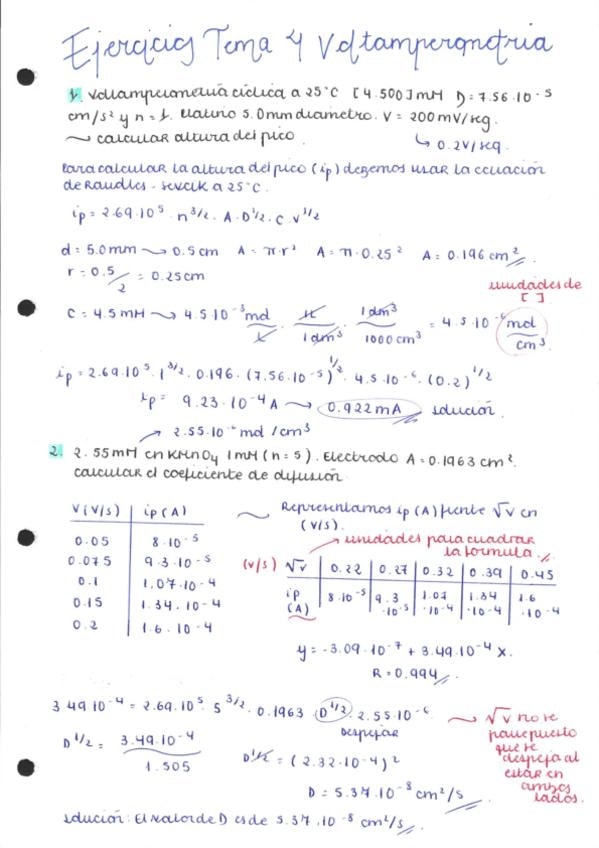 Ejercicios Tema 4 Voltamperometria
1. Voltamperometria cíclica a 25°C [4.500] mM D = 7.56·10⁻⁵
cm/s² y n = 1. 5.0mm diametro. V = 200mV/seg.
~ calcular altura del pico. ↳ 0.2V/seg.
Para calcular la altura del pico (ip) debemos usar la ecuación
de Randles - Sevcik a 25°C.
ip = 2.69·10⁵ · n^3/2 · A · D^1/2 · C · V^1/2
d = 5.0mm → 0.5cm A = π·r² A = π·0.25² A = 0.196 cm²
r = 0.5/2 = 0.25cm
unidades de
[ ]
C = 4.5mM → 4.5·10⁻³ mol/L · L/1dm³ · 1dm³/1000cm³ = 4.5·10⁻⁶ mol/cm³
ip = 2.69·10⁵ · 1^3/2 · 0.196 · (7.56·10⁻⁵)^1/2 · 4.5·10⁻⁶ · (0.2)^1/2
ip = 9.23·10⁻⁴ A → 0.922mA solución.
→ 2.55·10⁻⁶ mol/cm³
2. 2.55mM en KMnO₄ 1mM (n = 5). Electrodo A = 0.1963 cm².
calcular el coeficiente de difusión
V (V/s) ip (A)
0.05 8·10⁻⁵
0.075 9.3·10⁻⁵
0.1 1.07·10⁻⁴
0.15 1.34·10⁻⁴
0.2 1.6·10⁻⁴
~ Representamos ip (A) frente √v en
(V/s).
→ unidades para cuadrar
la formula.
(V/s) √v 0.22 0.27 0.32 0.39 0.45
ip (A) 8·10⁻⁵ 9.3·10⁻⁵ 1.07·10⁻⁴ 1.34·10⁻⁴ 1.6·10⁻⁴
y = -3.09·10⁻⁷ + 3.49·10⁻⁴ x.
R = 0.994
3.49·10⁻⁴ = 2.69·10⁵ · 5^3/2 · 0.1963 · D^1/2 · 2.55·10⁻⁶
despejar
~ √v no se
pone puesto
que se
despeja al
estar en
ambos
lados.
D^1/2 = 3.49·10⁻⁴/1.505 D^1/2 = (2.32·10⁻⁴)²
D = 5.37·10⁻⁸ cm²/s
solución: El valor de D es de 5.37·10⁻⁸ cm²/s.